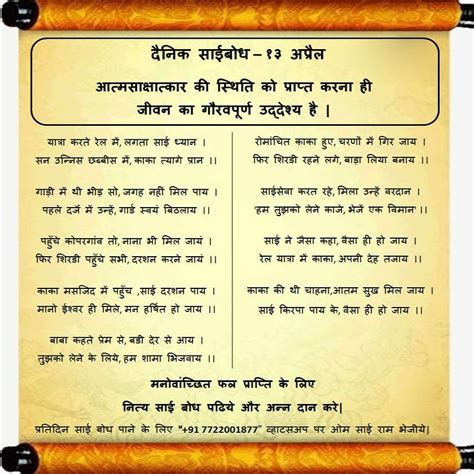 दैनिक साईबोध – १३ अप्रैल
आत्मसाक्षात्कार की स्थिति को प्राप्त करना ही
जीवन का गौरवपूर्ण उद्देश्य है |
यात्रा करते रेल में, लगता साई ध्यान ।
सन उन्निस छब्बीस में, काका त्यागे प्रान ।।
गाड़ी में थी भीड़ सो, जगह नहीं मिल पाय ।
पहले दर्जे में उन्हें, गार्ड स्वयं बिठलाय ।।
पहुँचे कोपरगांव तो, नाना भी मिल जायं ।
फिर शिरडी पहुँचे सभी, दरशन करने जायं ।।
काका मसजिद में पहुँच ,साई दरशन पाय ।
मानो ईश्वर ही मिले, मन हर्षित हो जाय ।।
बाबा कहते प्रेम से, बडी देर से आय ।
तुझको लेने के लिये, हम शामा भिजवाय ।।
रोमांचित काका हुए, चरणों में गिर जाय ।
फिर शिरडी रहने लगे, बाड़ा लिया बनाय ।।
साईसेवा करत रहे, मिला उन्हें वरदान ।
'हम तुझको लेने काजे, भेजें एक विमान' ।।
साई ने जैसा कहा, वैसा ही हो जाय ।
रेल यात्रा में काका, अपनी देह तजाय ।।
काका की थी चाहना, आतम सुख मिल जाय ।
साई किरपा पाय के, वैसा ही हो जाय ।।
मनोवांच्छित फल प्राप्ति के लिए
नित्य साई बोध पढिये और अन्न दान करे|
प्रतिदिन साई बोध पाने के लिए "+91 7722001877" व्हाटसअप पर ओम साई राम भेजीये|